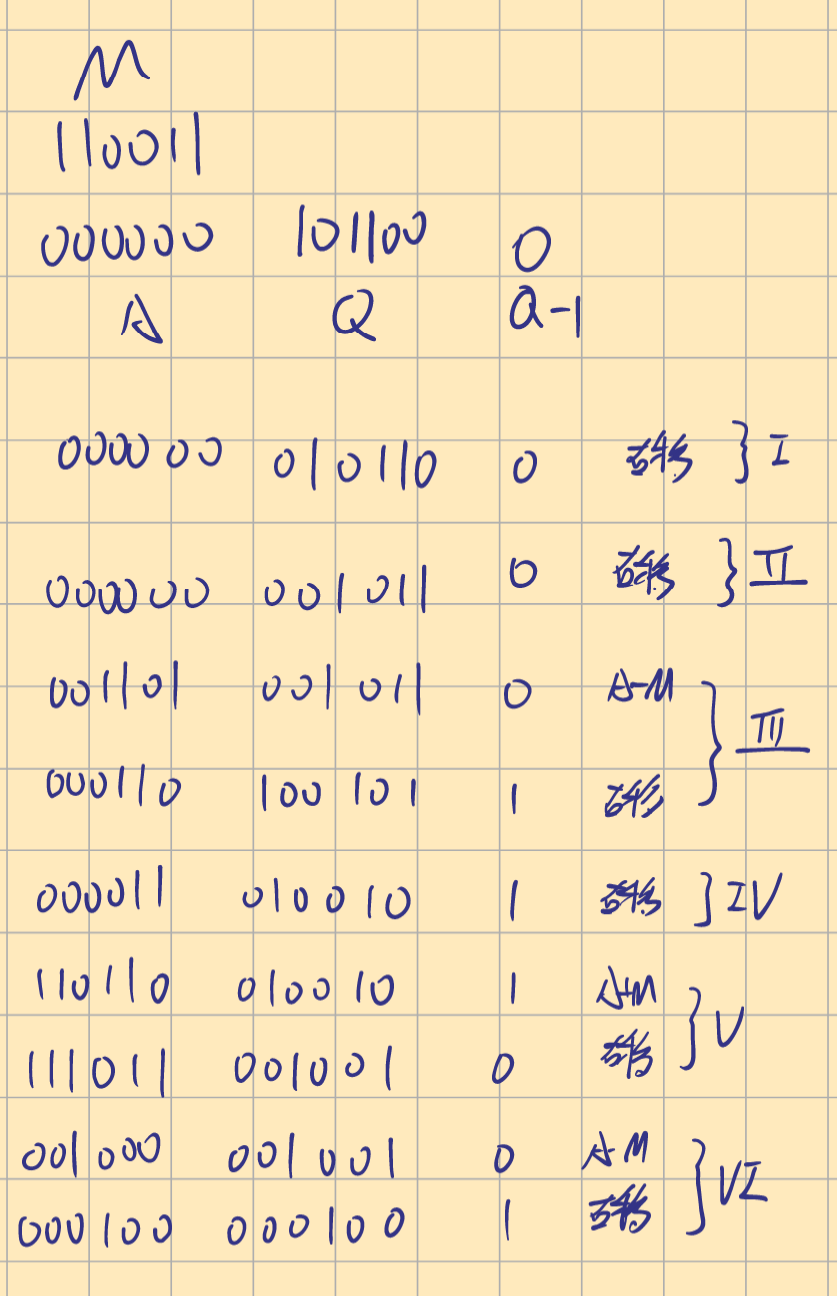 M
110011
000000 101100 0
A Q Q-1
000000 010110 0 右移 } I
000000 001011 0 右移 } II
001101 001011 0 A-M
000110 100101 1 右移 } III
000011 010010 1 右移 } IV
110110 010010 1 A+M
111011 001001 0 右移 } V
001000 001001 0 A-M
000100 000100 1 右移 } VI